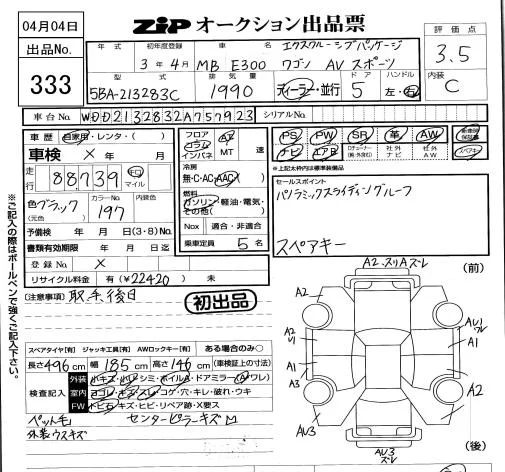 04月04日
ZIP オークション出品票
出品No.
333
年式 初年度登録 車名
3年4月 MB E300 エクスクルーシブパッケージ
ワゴン AVスポーツ
評価点
3.5
内装
C
型式 排気量 ドア ハンドル
5BA-213283C 1990 ディーラー・並行 5 左・右
車台No. W1DD2132832A757923 シリアルNo.
車歴 自家用・レンタ・( )
車検 × 年 月
走行 88739 km マイル
色 ブラック (元色) カラーNo. 197 内装色
予備検 年 月 日(3・8)No.
書類有効期限 年 月 日迄
登録No. ×
リサイクル料金 有(¥22420) 未
フロア コラム インパネ AT MT 速
冷房
無・C・AC・AAC
燃料
ガソリン・軽油・電気・その他( )
Nox 適合・非適合
乗車定員 5名
PS PW SR 革 AW 新車時保証書
ナビ エアB Dチューナー 社外ナビ 社外AW スペアキー
*上記太枠内は標準装備品
セールスポイント
パノラミックスライディングルーフ
スペアキー
※ご記入の際はボールペンで強くご記入下さい。
(注意事項) 取手後日
初出品
スペアタイヤ[有] ジャッキ工具[有] AWロックキー[有] ある場合のみ○
長さ496cm 幅185cm 高さ146cm (車検証上の寸法)
検査記入
外装 小キズ・小凹・シミ・ホイルA・ドアミラー(A・ワレ)
室内 ヨゴレ・キズ・スレ・コゲ・穴・キレ・破れ・ウキ
FW トビ石・キズ・ヒビ・リペア跡・X要ス
ペット毛 センターピラーキズM
外装ウスキズ
A2.スリAズレ
(前)
A2
A2
U1
A3
AV3
AU1
ズレ
A1
A1
A2
AV3
ズレ
(後)